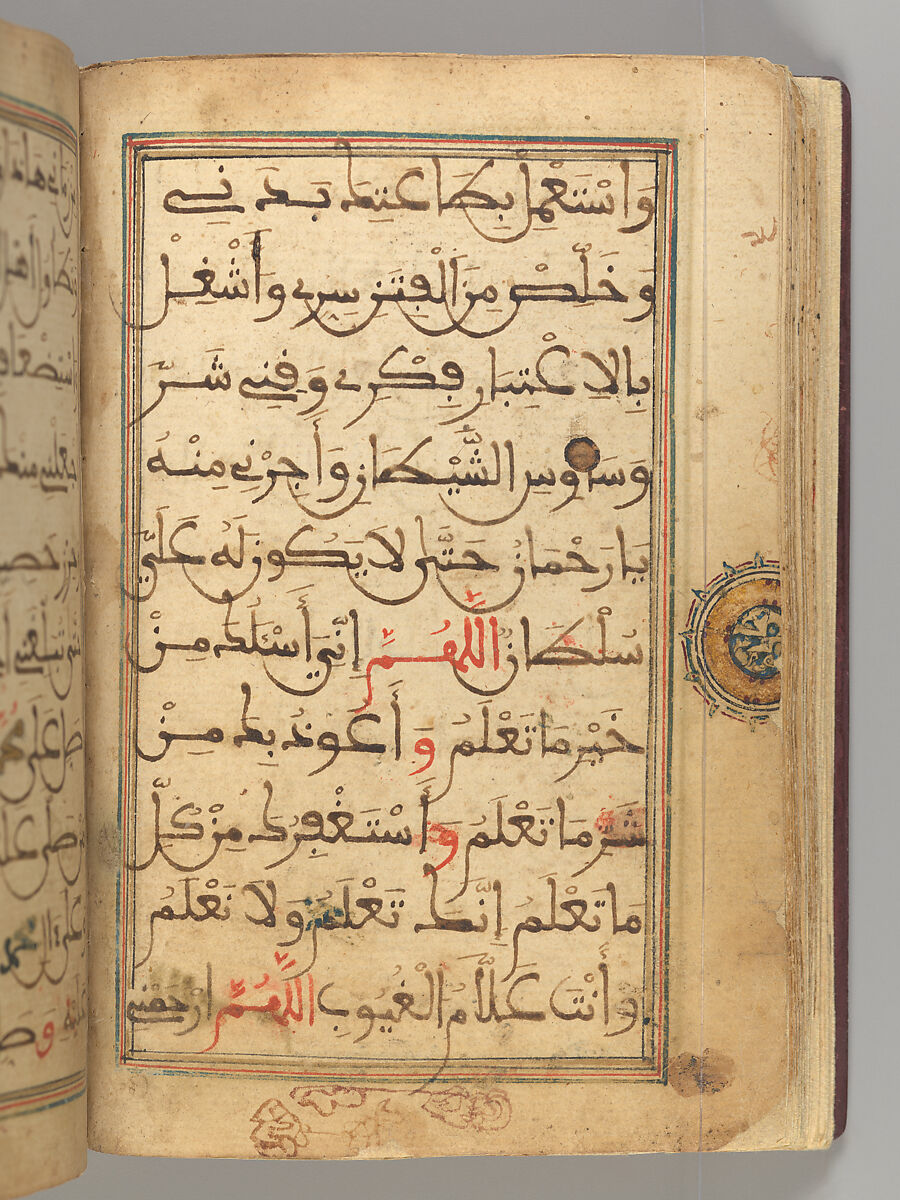 وَاسْتَعْمِلْ بِطَاعَتِكَ بَدَنِي
وَخَلِّصْ مِنَ الْفِتَنِ سِرِّي وَأَشْغِلْ
بِالِاعْتِبَارِ فِكْرِي وَقِنِي شَرَّ
وَسَاوِسِ الشَّيْطَانِ وَأَجِرْنِي مِنْهُ
يَا رَحْمَانُ حَتَّى لَا يَكُونَ لَهُ عَلَيَّ
سُلْطَانٌ اللَّهُمَّ إِنِّي أَسْئَلُكَ مِنْ
خَيْرِ مَا تَعْلَمُ وَأَعُوذُ بِكَ مِنْ
شَرِّ مَا تَعْلَمُ وَأَسْتَغْفِرُكَ مِنْ كُلِّ
مَا تَعْلَمُ إِنَّكَ تَعْلَمُ وَلَا نَعْلَمُ
وَأَنْتَ عَلَّامُ الْغُيُوبِ اللَّهُمَّ ارْحَمْنِي